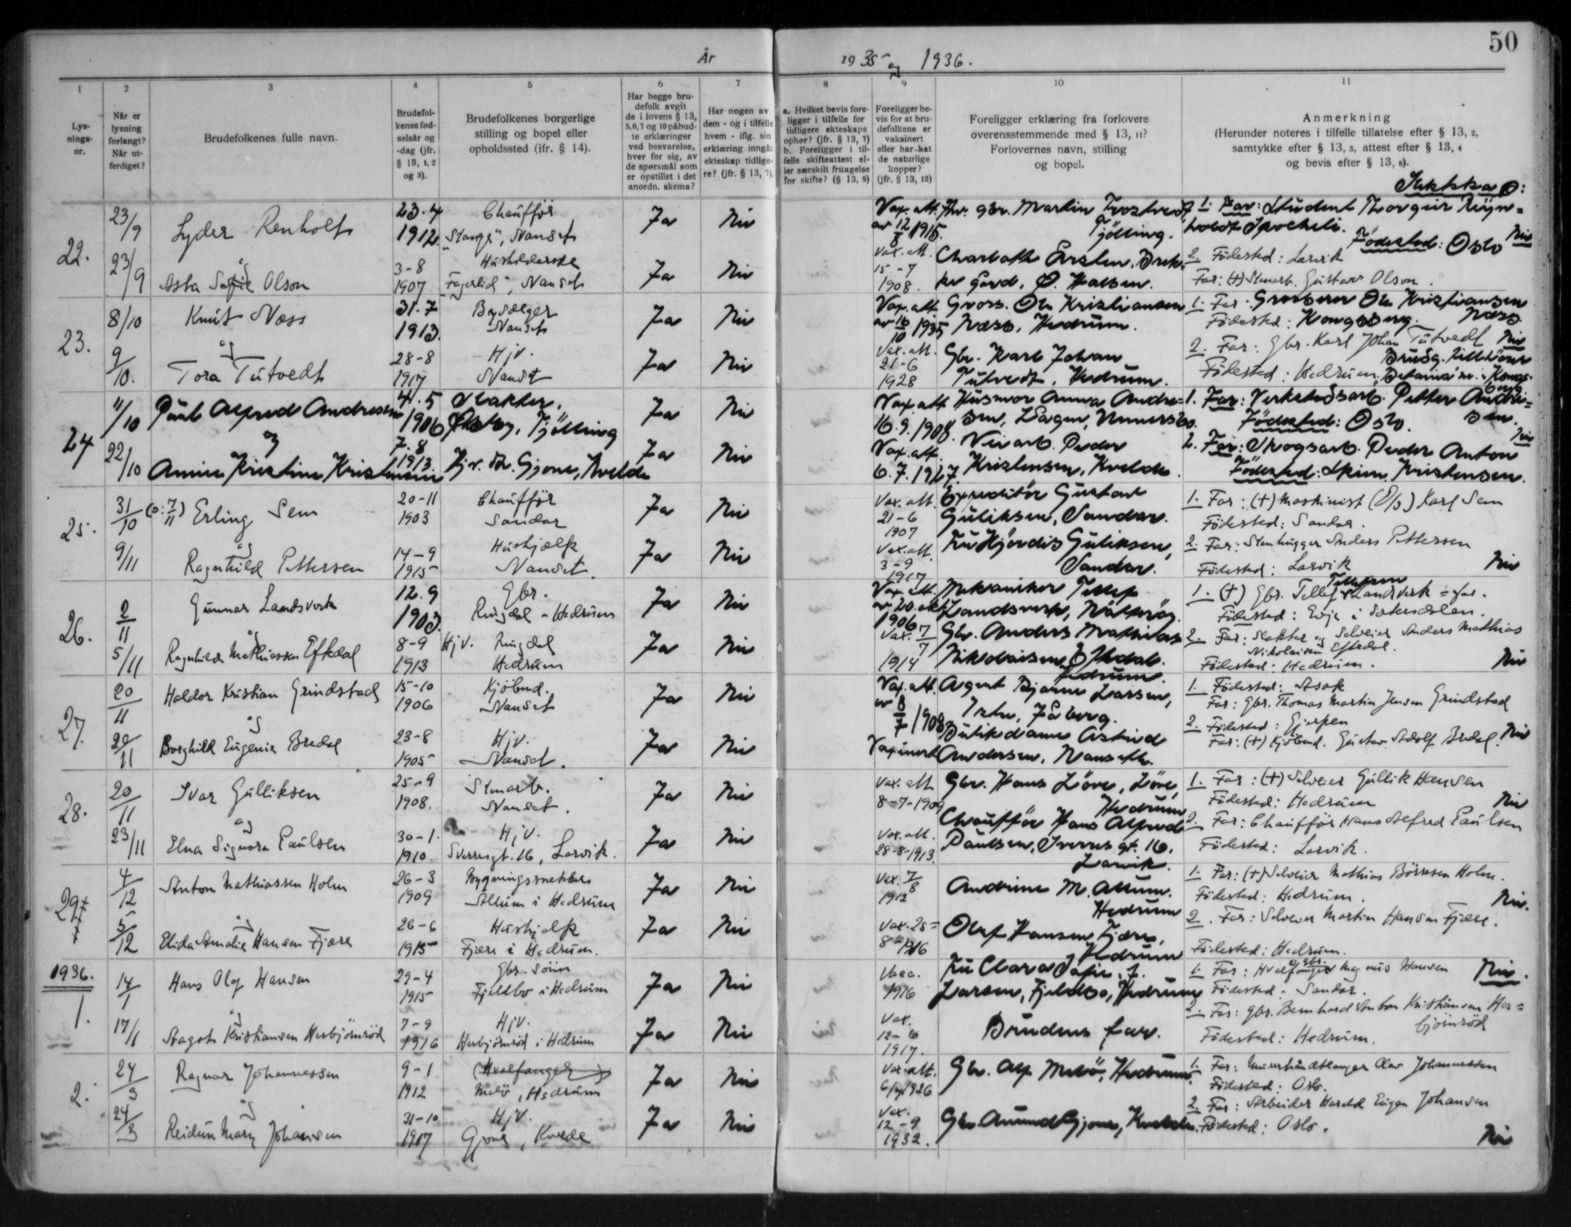 50
År 1935 og 1936.
1 2 3 4 5 6 7 8 9 10 11
Lys-nings-nr.
Når er lysning forlangt? Når ut-ferdiget?
Brudefolkenes fulle navn.
Brudefol-kenes fød-selsår og -dag (jfr. § 13, 1, 2 og 3).
Brudefolkenes borgerlige stilling og bopel eller opholdssted (ifr. § 14).
Har begge bru-defolk avgit de i lovens § 13, 5,6,7 og 10 påbud-te erklæringer ved besvarelse, hver for sig, av de spørsmål som er opstillet i det anordn. skema?
Har nogen av dem - og i tilfelle hvem - iflg. sin erklæring inngåt ekteskap tidlige-re? (jfr. § 13, 7).
a. Hvilket bevis fore-ligger i tilfelle for tidligere ekteskaps ophør? (jfr. § 13, 7) b. Foreligger i til-felle skifteattest el-ler særskilt fritagelse for skifte? (§ 13, 9)
Foreligger be-vis for at bru-defolkene er vaksinert eller har hat de naturlige kopper? (jfr. § 13, 12)
Foreligger erklæring fra forlovere overensstemmende med § 13, 11? Forlovernes navn, stilling og bopel.
Anmerkning (Herunder noteres i tilfelle tillatelse efter § 13, 2, samtykke efter § 13, 3, attest efter § 13, 4 og bevis efter § 13, 8).
22. 23/9 Lyder Renholt 23-4 1912 Chauffør "Stange", Nanset Ja Nei Vax. att. 1915. Gbr. Martin Tjölling. 1. Far: Student Thorgeir
Födested: Oslo Nei
og
23/9 Asta Sofie Olson 3-8 1907 Husholderske "Fagerlid", Nanset Ja Nei Vax. att. 15-7 1908. 2. Födested: Larvik
Far: (+) Gustav Olson.
23. 8/10 Knut Næss 31.7 1913. Nanset Ja Nei Vax. att. 1935 Gross. Ole Kristiansen Næss, Hedrum. 1. Far: Grosserer Ole Kristiansen Næss
Födested: Kongsberg.
og
9/10. Tora Tutvedt 28-8 1917 Hjv. Nanset Ja Nei Vax. att. 21-6 1928 Gbr. Karl Johan Tutvedt, Hedrum. 2. Far: Gbr. Karl Johan Tutvedt Nei
Födested: Hedrum.
24 11/10 Paul Alfred Andresen 4.5 1906 Slakter, Tjölling Ja Nei Vax. att. 16.9.1908. Husmor Anna Andresen, 1. Far: Verkstedsarb. Petter Andresen
Födested: Oslo. Nei
og
22/10 Anne Kristine Kristensen 7.8 1913. Hjv. Gjone, Kvelde Ja Nei Vax. att. 6.7.1927. Peder Kristensen, Kvelde. 2. Far: Skogsarb. Peder Anton Kristensen.
Födested: Skien
25. 31/10 (o: 7/11) Erling Sem 20-11 1903 Chauffør Sandar Ja Nei Vax. att. 21-6 1907 Expeditör Gustav Guliksen, Sandar. 1. Far: (+) Maskinist Karl Sem
Födested: Sandar.
og
9/11 Ragnhild Pettersen 14-9 1915 Hushjælp Nanset. Ja Nei Vax. att. 3-9 1917 Fru Hjördis Guliksen, Sandar. 2. Far: Stenhugger Anders Pettersen
Födested: Larvik Nei
26. 2/11 Gunnar Landsverk 12.9 1903 Gbr. Ringdal - Hedrum Ja Nei Vax. att. 1906 Mekaniker Tellef Landsverk, 1. (+) Gbr. Tellef Tellefsen Landsverk = far.
Födested: Evje i Setesdalen.
og
5/11 Ragnhild Mathiassen Efteldal 8-9 1913 Hjv. Ringdal Hedrum Ja Nei Vax. 7/7 1914 Gbr. Anders Mathias Nikolaisen Hedrum. 2. Far: Slakter og Selveier Anders Mathias Nikolaisen
Födested: Hedrum. Nei
27. 20/11 Haldor Kristian Grindstad 15-10 1906 Kjöbmd. Nanset Ja Nei Vax. att. 8/7 1908 Agent Bjarne Larsen, 1. Födested: Asak
Far: Gbr. Thomas Martin Jensen Grindstad
og
20/11 Borghild Eugenie Bredal 23-8 1905 Hjv. Nanset. Ja Nei Butikdame Astrid Andersen, Nanseth. 2. Födested: Gjerpen
Far: (+) Kjöbmd. Gustav Adolf Bredal. Nei
28. 20/11 Ivar Gulliksen 25-9 1908. Stenarb. Nanset. Ja Nei Vax. att. 8-7-1909 Gbr. Hans Löve, Löve, Hedrum 1. Far: (+) Selveier Gullik Hansen
Födested: Hedrum Nei
og
23/11 Elna Signora Paulsen 30-1. 1910 Hjv. Sverresgt. 16, Larvik. Ja Nei Vax. att. 28-8-1913 Chauffør Hans Alfred Paulsen, Sverres gt. 16, Larvik. 2. Far: Chauffør Hans Alfred Paulsen
Födested: Larvik.
29 4/12 Anton Mathiassen Holm 26-3 1909 Allum i Hedrum Ja Nei Vax. 7/8 1912 Andrine M. Allum. Hedrum 1. Far: (+) Selveier Mathias Holm.
Födested: Hedrum. Nei.
og
5/12 Elida Amalie Hansen Fjære 26-6 1915 Hushjelp Fjære i Hedrum. Ja Nei Vax. 25-8-1916 Olaf Hansen Fjære, Hedrum 2. Far: Selveier Martin Hansen Fjære.
Födested: Hedrum.
1936.
1. 14/1 Hans Olaf Hansen 29-4 1915 Gbr. sönn Fjeldbo i Hedrum Ja Nei Vacc. 1916 Fru Clara Sofie Larsen, Fjeldbo, Hedrum 1. Far: Hvalfanger og gbr. Magnus Hansen Nei.
Födested. Sandar.
og
17/1 Aagot Kristiansen Herbjörnröd 7-9 1916 Hjv. Herbjörnröd i Hedrum Ja Nei Vax. 12-6 1917. Brudens far. 2. Far: Gbr. Bernhard Anton Kristiansen Her=björnröd
Födested: Hedrum.
2. 24/3 Ragnar Johannessen 9-1 1912 (Hvalfanger) Melö, Hedrum Ja Nei Vax. att. 1926 Gbr. Alf Melö, Hedrum. 1. Far: Olav Johannessen
Födested: Oslo.
og
24/3 Reidun Mary Johansen 31-10 1917 Hjv. Gjone, Kvelde Ja Nei Vax. 12-9 1932. Gbr. Amund Gjone, Kvelde. 2. Far: Arbeider Harald Eugen Johansen
Födested: Oslo. Nei